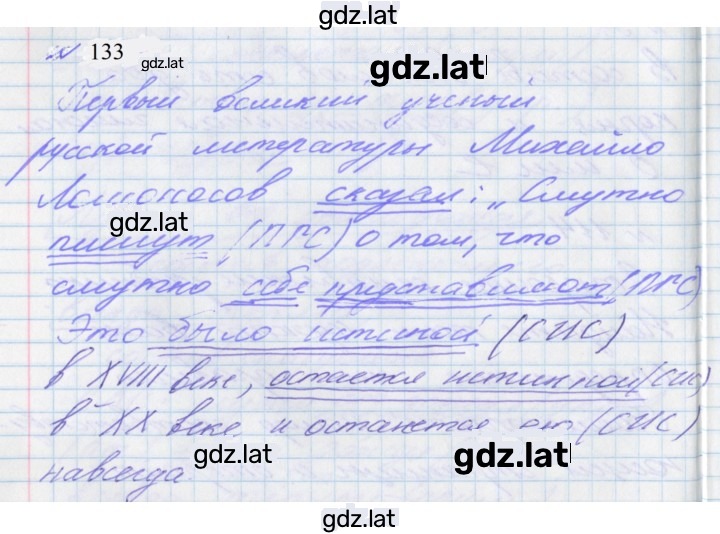 gdz.lat
№ 133 gdz.lat gdz.lat
Первый великий ученый
русской литературы Михайло
Ломоносов сказал: „Смутно
gdz.lat
пишут (ПГС) о том, что
смутно себе представляют (ПГС)
Это было истиной (СИС)
в XVIII веке, остается истинной (СИС)
в XX веке и останется ею (СИС)
gdz.lat gdz.lat
навсегда
gdz.lat